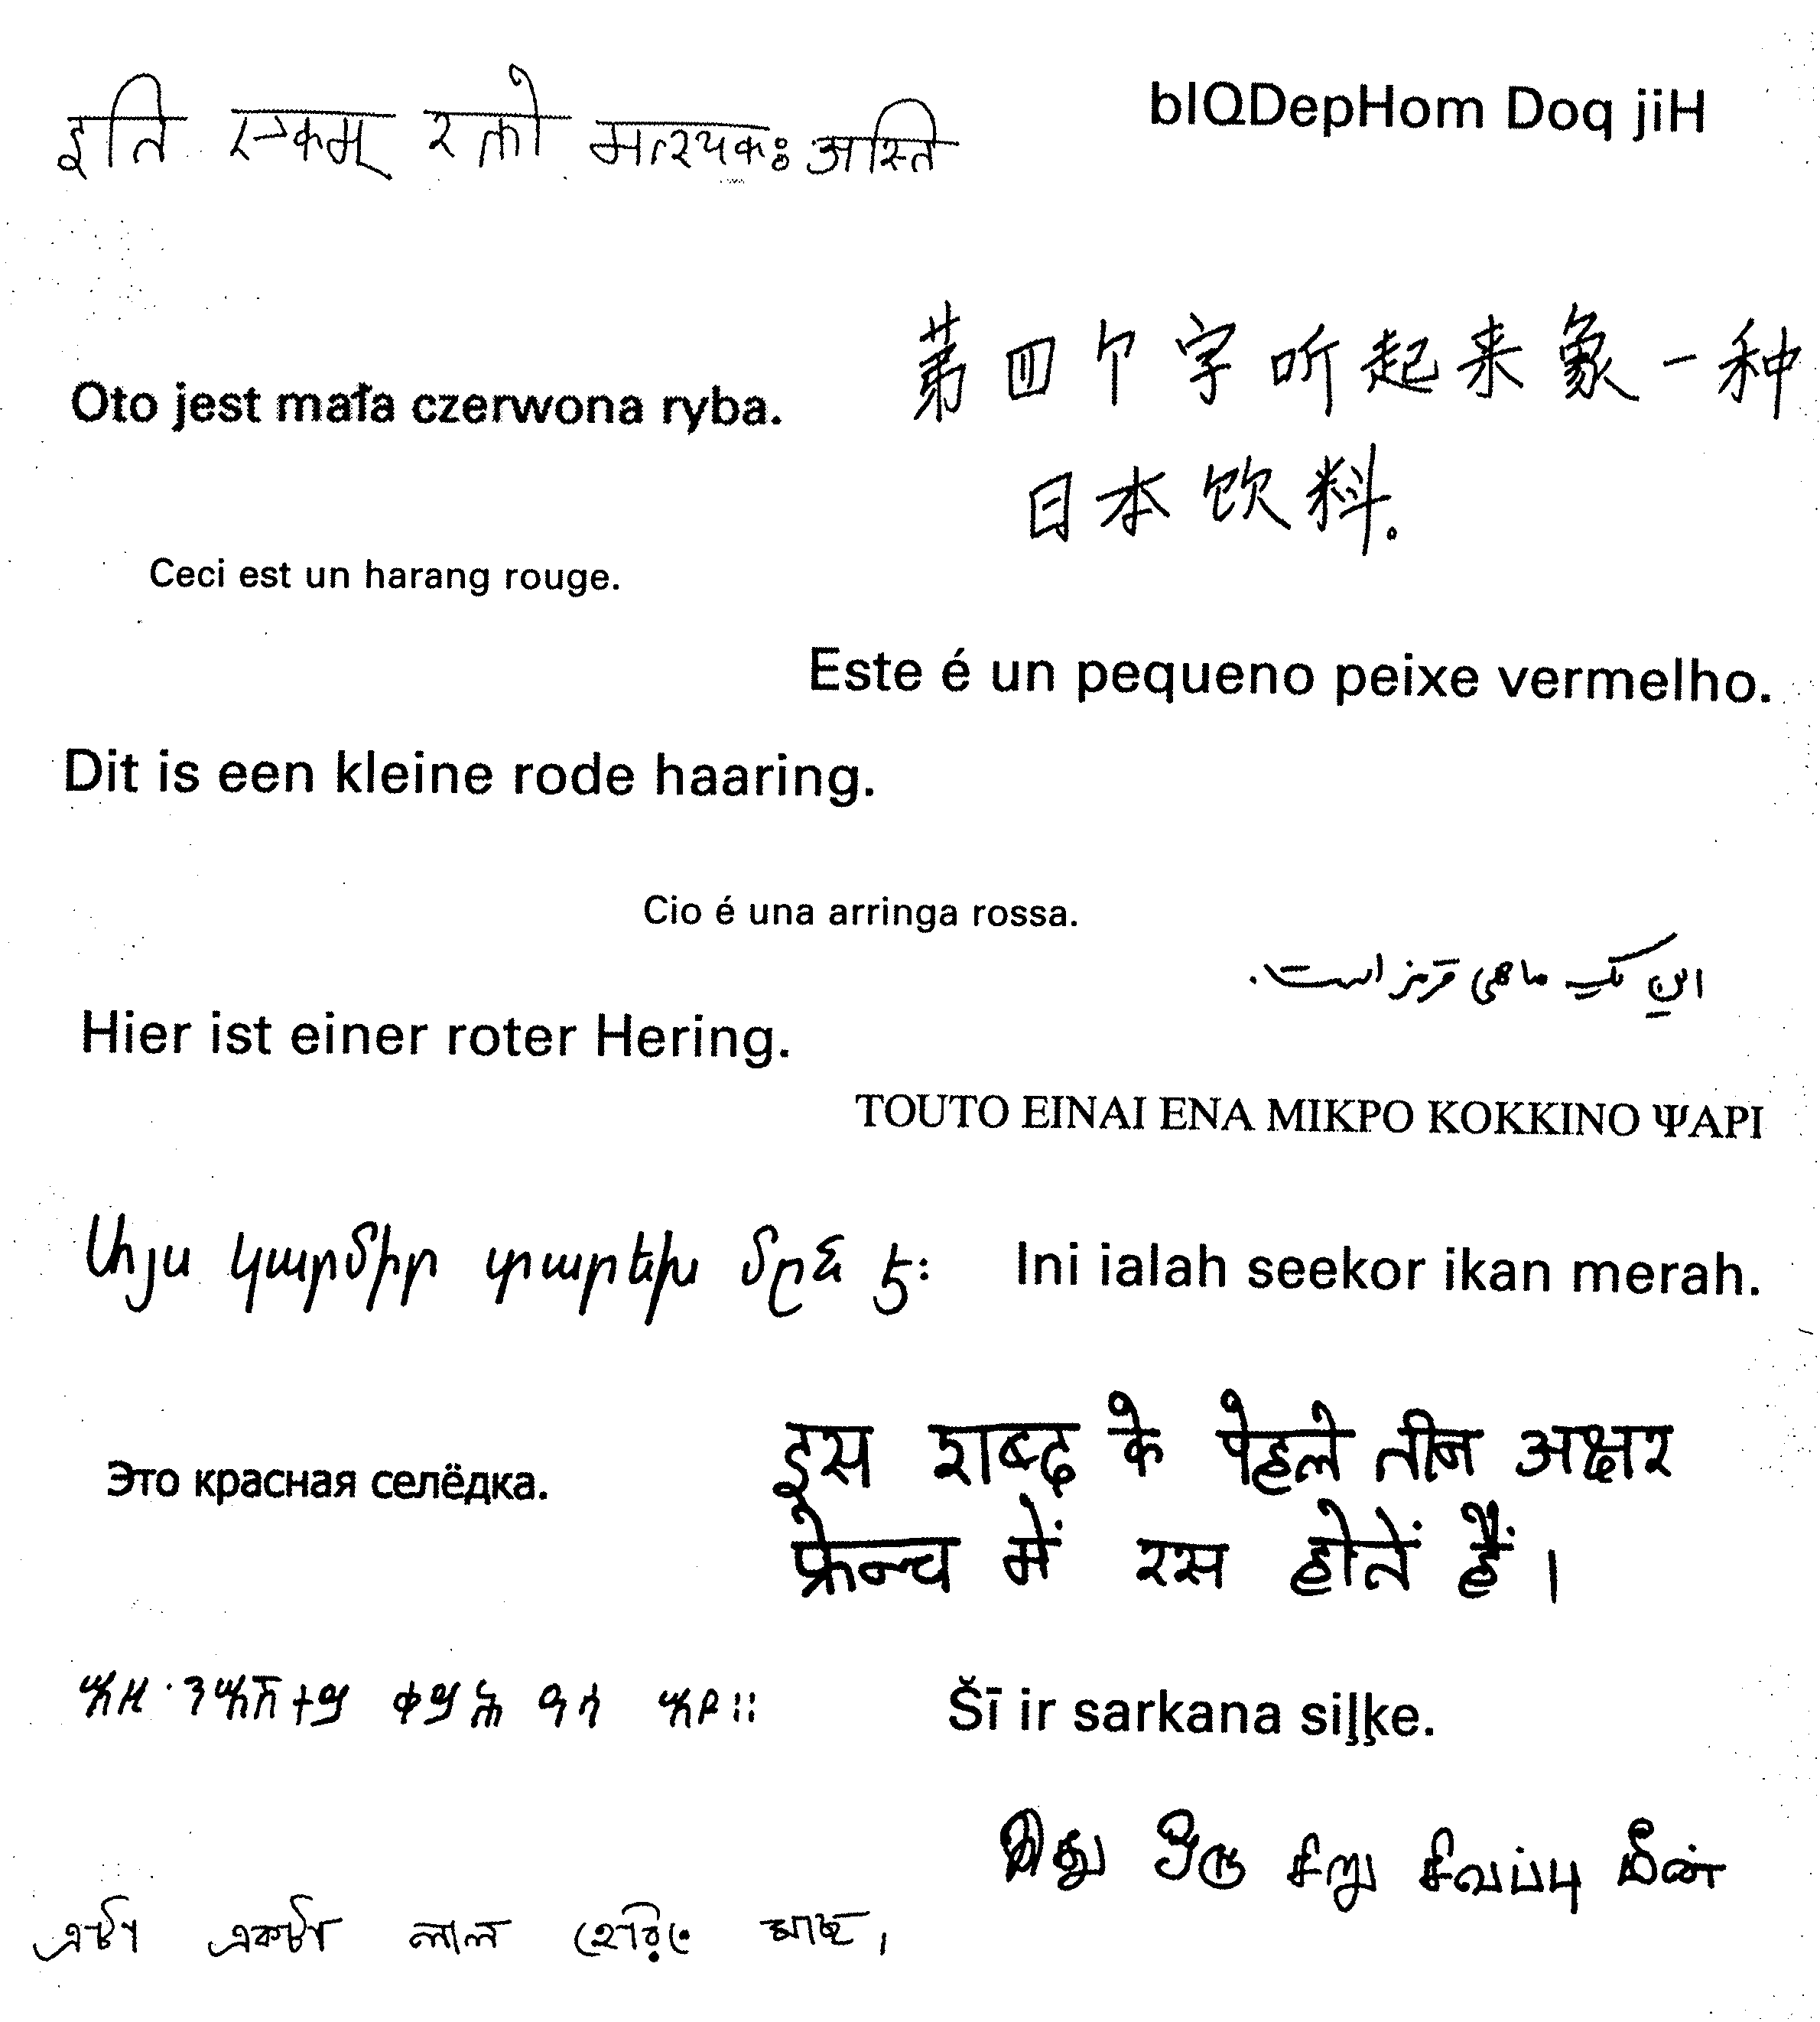 इति रक्तो मत्स्यकः अस्ति
bIQDepHom Doq jiH
第四个字听起来象一种
日本饮料.
Oto jest mała czerwona ryba.
Ceci est un harang rouge.
Este é un pequeno peixe vermelho.
Dit is een kleine rode haaring.
Cio é una arringa rossa.
این یک ماهی قرمز است.
Hier ist einer roter Hering.
ΤΟUΤΟ ΕΙΝΑΙ ΕΝΑ ΜΙΚΡΟ ΚΟΚΚΙΝΟ ΨΑΡΙ
Այս կարմիր տարեխ մըն է։
Ini ialah seekor ikan merah.
Это красная селёдка.
इस शब्द के पेहले तीन अक्षर
फ्रेन्च में रस होतें हैं।
Šī ir sarkana siļķe.
இது ஒரு சிறு சிவப்பு மீன்
এটা একটা লাল হেরিং মাছ।